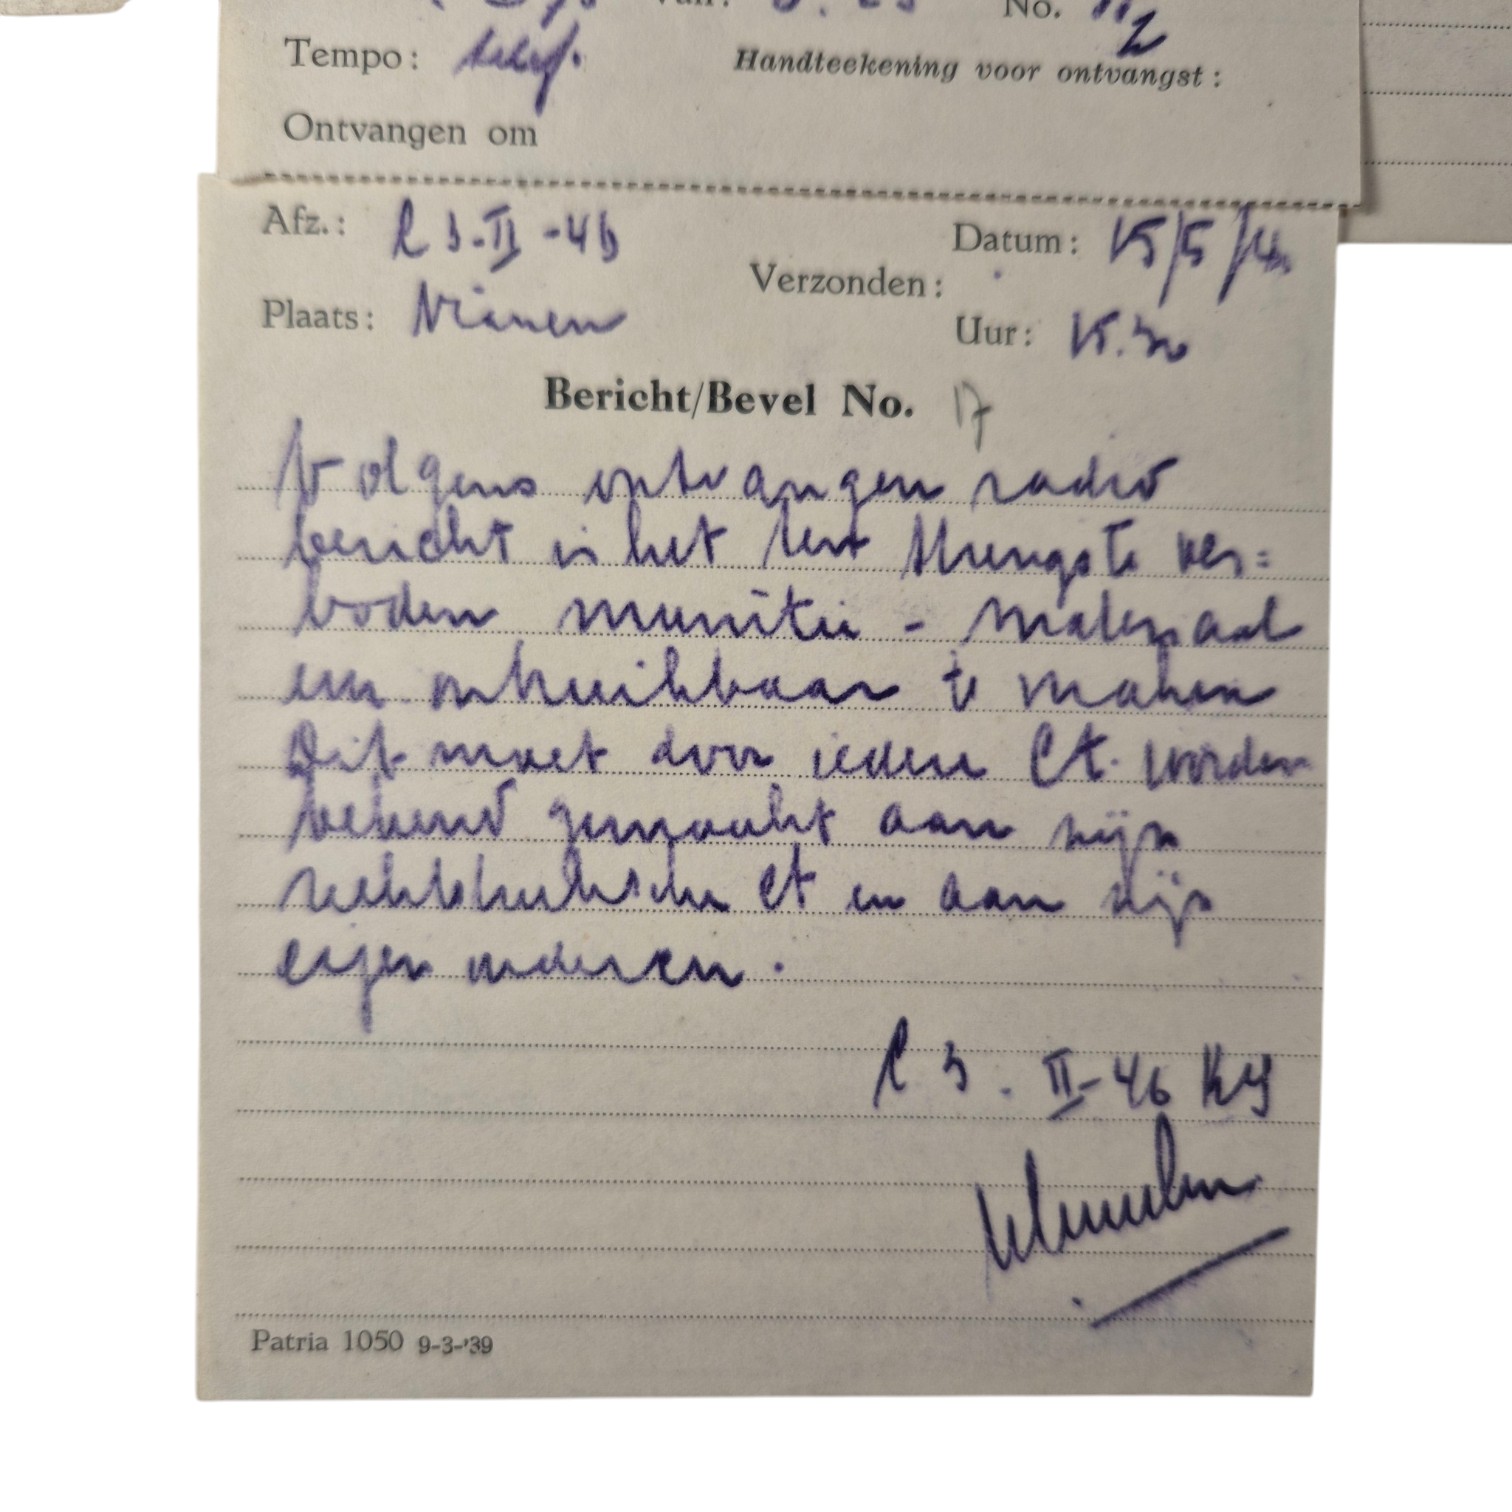 van: No.
Tempo: telef.
Handteekening voor ontvangst:
Ontvangen om
Afz.: C 3-II-46
Datum: 15/5/40
Verzonden:
Plaats: Vianen
Uur: 15.30
Bericht/Bevel No. 17
Volgens ontvangen radio
bericht is het ten strengste ver=
boden munitie - materiaal
enz onbruikbaar te maken
Dit moet door iedere Ct. worden
bekend gemaakt aan zijn
rechtstreeksche Ct en aan zijn
eigen onderdeelen.
C 3. II-46 RI
Patria 1050 9-3-'39